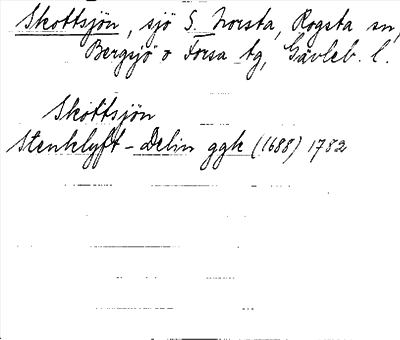 Skottsjön, sjö S. Norsta, Rogsta sn,
Bergsjö o Forsa tg, Gävleb. l.
Skottsjön
Stenklyft - Delin ggk (1688) 1782